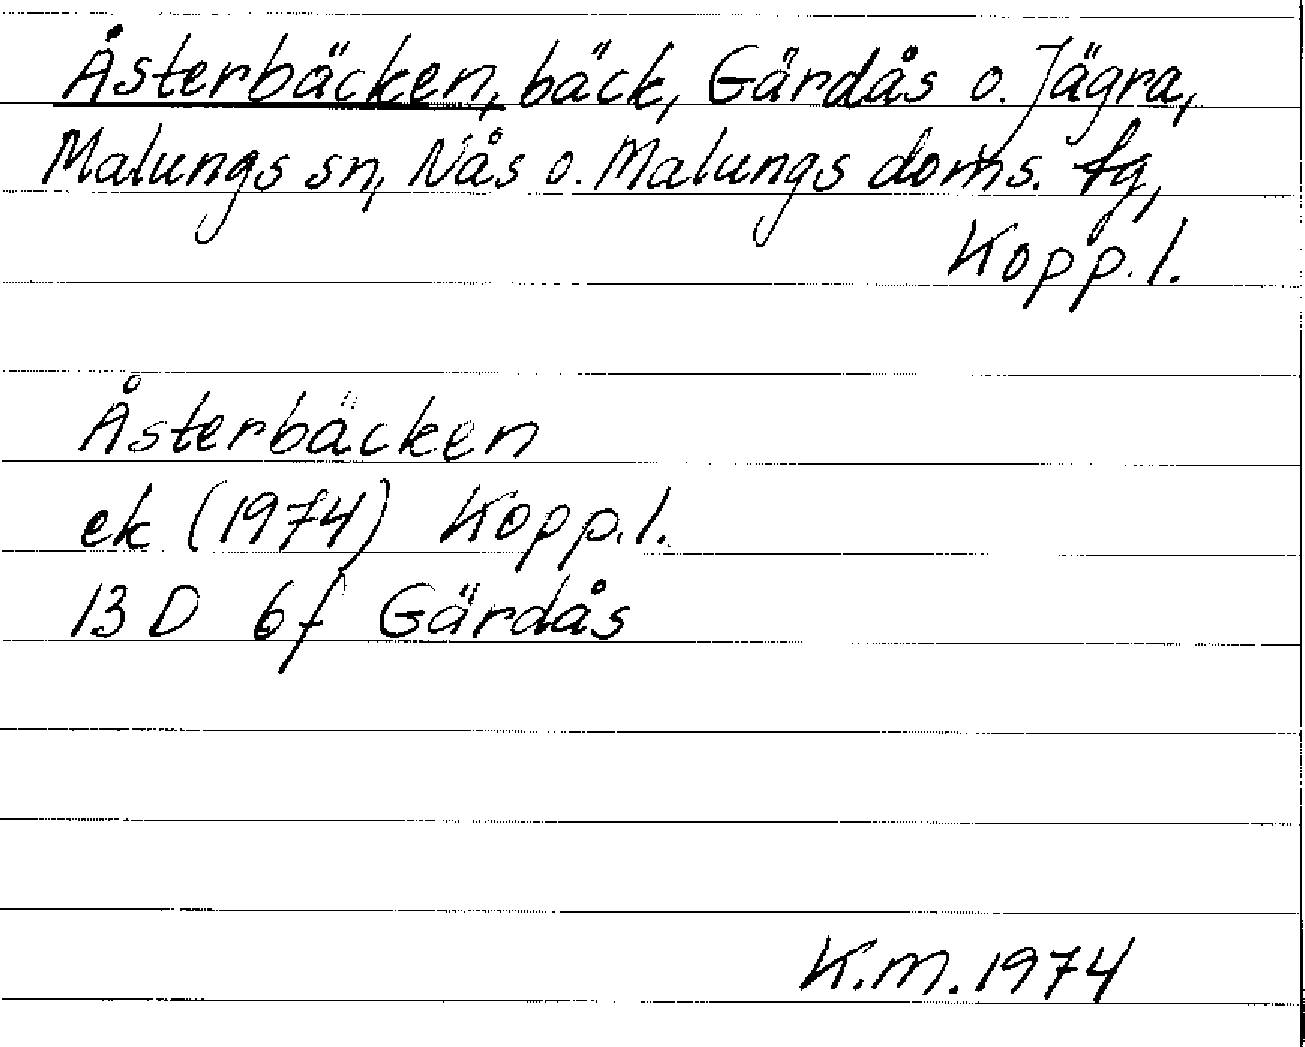 Åsterbäcken, bäck, Gärdås o. Jägra,
Malungs sn, Nås o. Malungs doms. tg,
Kopp. l.
Åsterbäcken
ek (1974) Kopp. l.
13 D 6f Gärdås
K.M. 1974